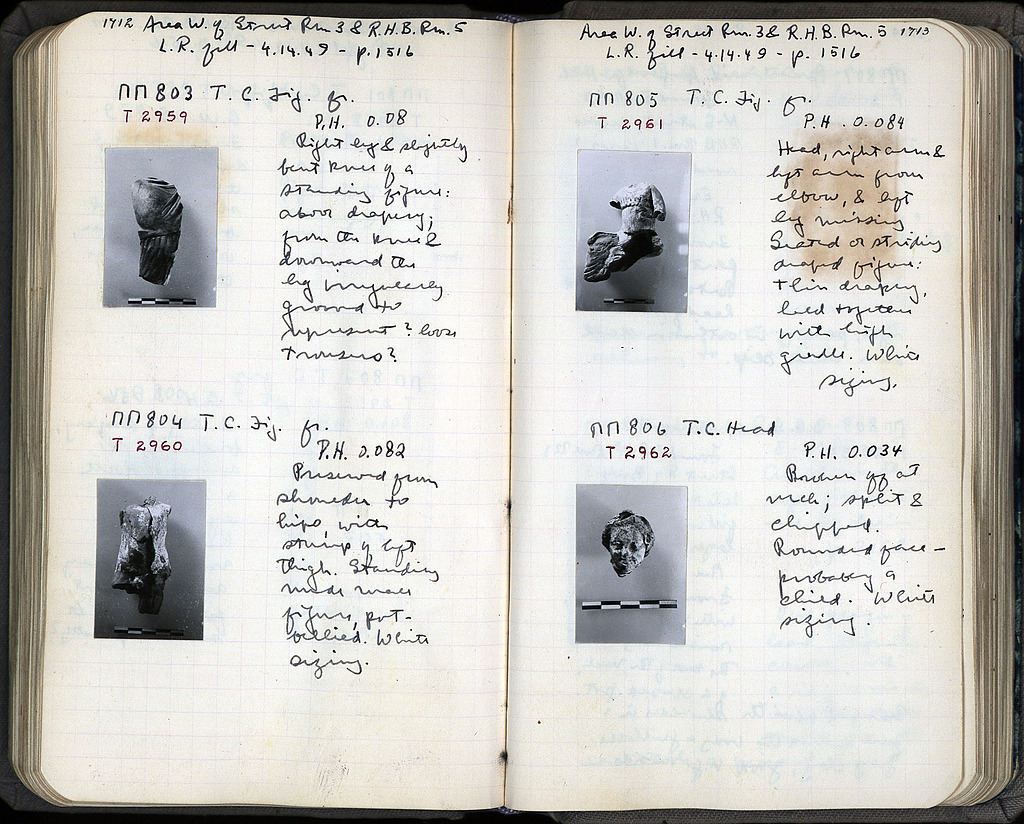 1712 Area W. of Street Rm. 3 & R.H.B. Rm. 5
L.R. fill - 4.14.49 - p. 1516
ΠΠ 803 T.C. Fig. fr.
T 2959
P.H. 0.08
Right leg & slightly
bent knee of a
standing figure:
above drapery;
from the knee
downward the
leg
grooved to
represent ? loose
trousers?
ΠΠ 804 T.C. Fig. fr.
T 2960
P.H. 0.082
Preserved from
shoulder to
hips, with
stump of left
thigh. Standing
nude male
figure, pot-
bellied. White
sizing.
Area W. of Street Rm. 3 & R.H.B. Rm. 5 1713
L.R. fill - 4.14.49 - p. 1516
ΠΠ 805 T.C. Fig. fr.
T 2961
P.H. 0.084
Head, right arm &
left arm from
elbow, & left
leg missing
Seated or striding
draped figure:
thin drapery,
held together
with high
girdle. White
sizing.
ΠΠ 806 T.C. Head
T 2962
P.H. 0.034
Broken off at
neck; split &
chipped.
Rounded face –
probably a
child. White
sizing.